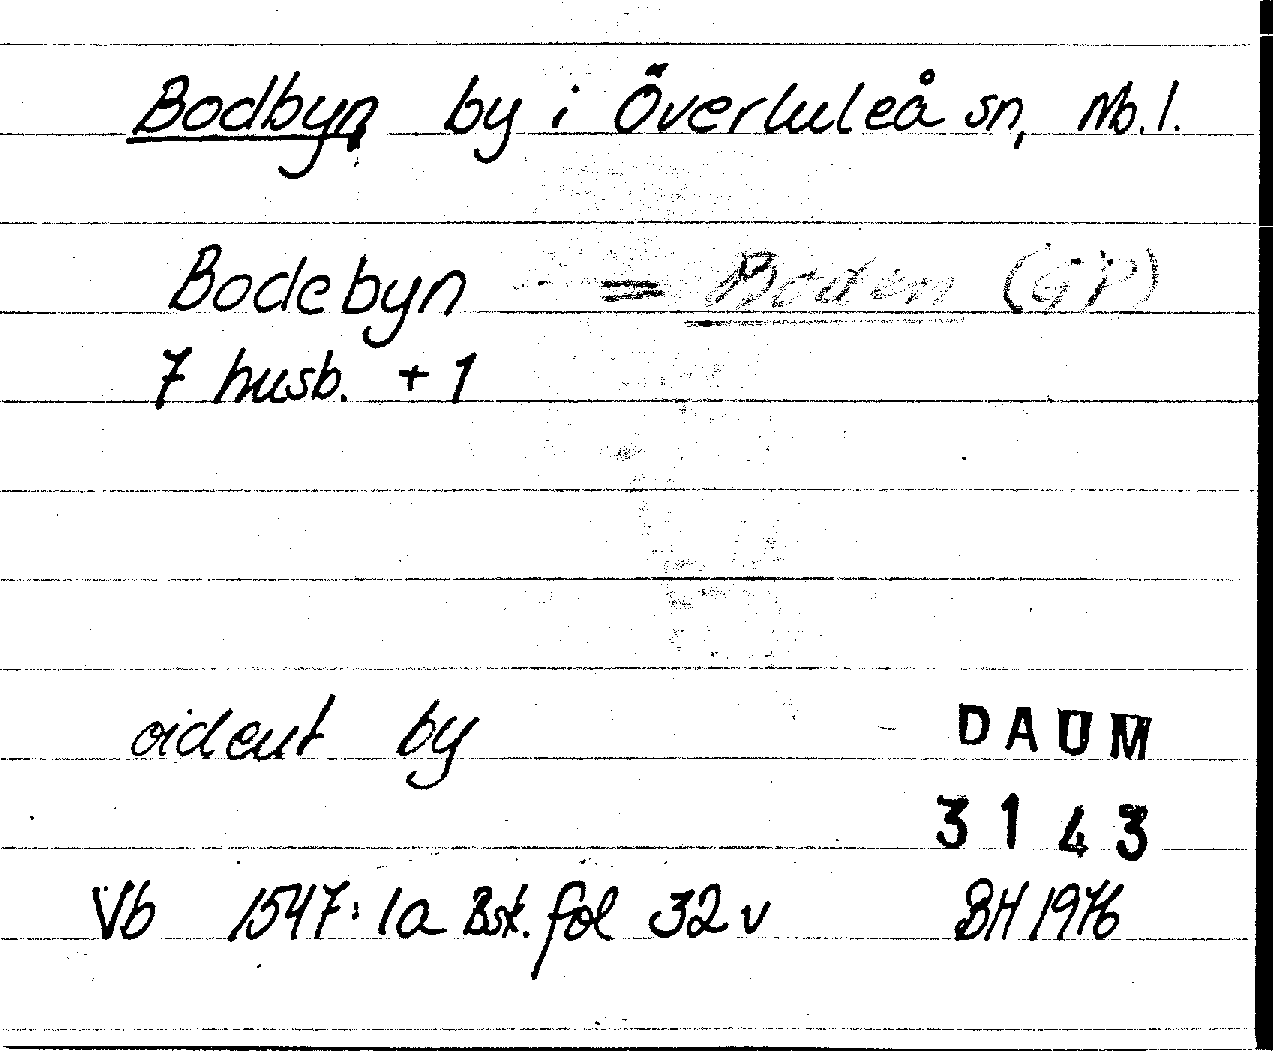 Bodbyn by i Överluleå sn, Nb. l.
Bodebyn = Boden (GP)
7 husb. + 1
oident by
DAUM
3143
Vb 1547:1a Bsk. fol 32 v BH 1976